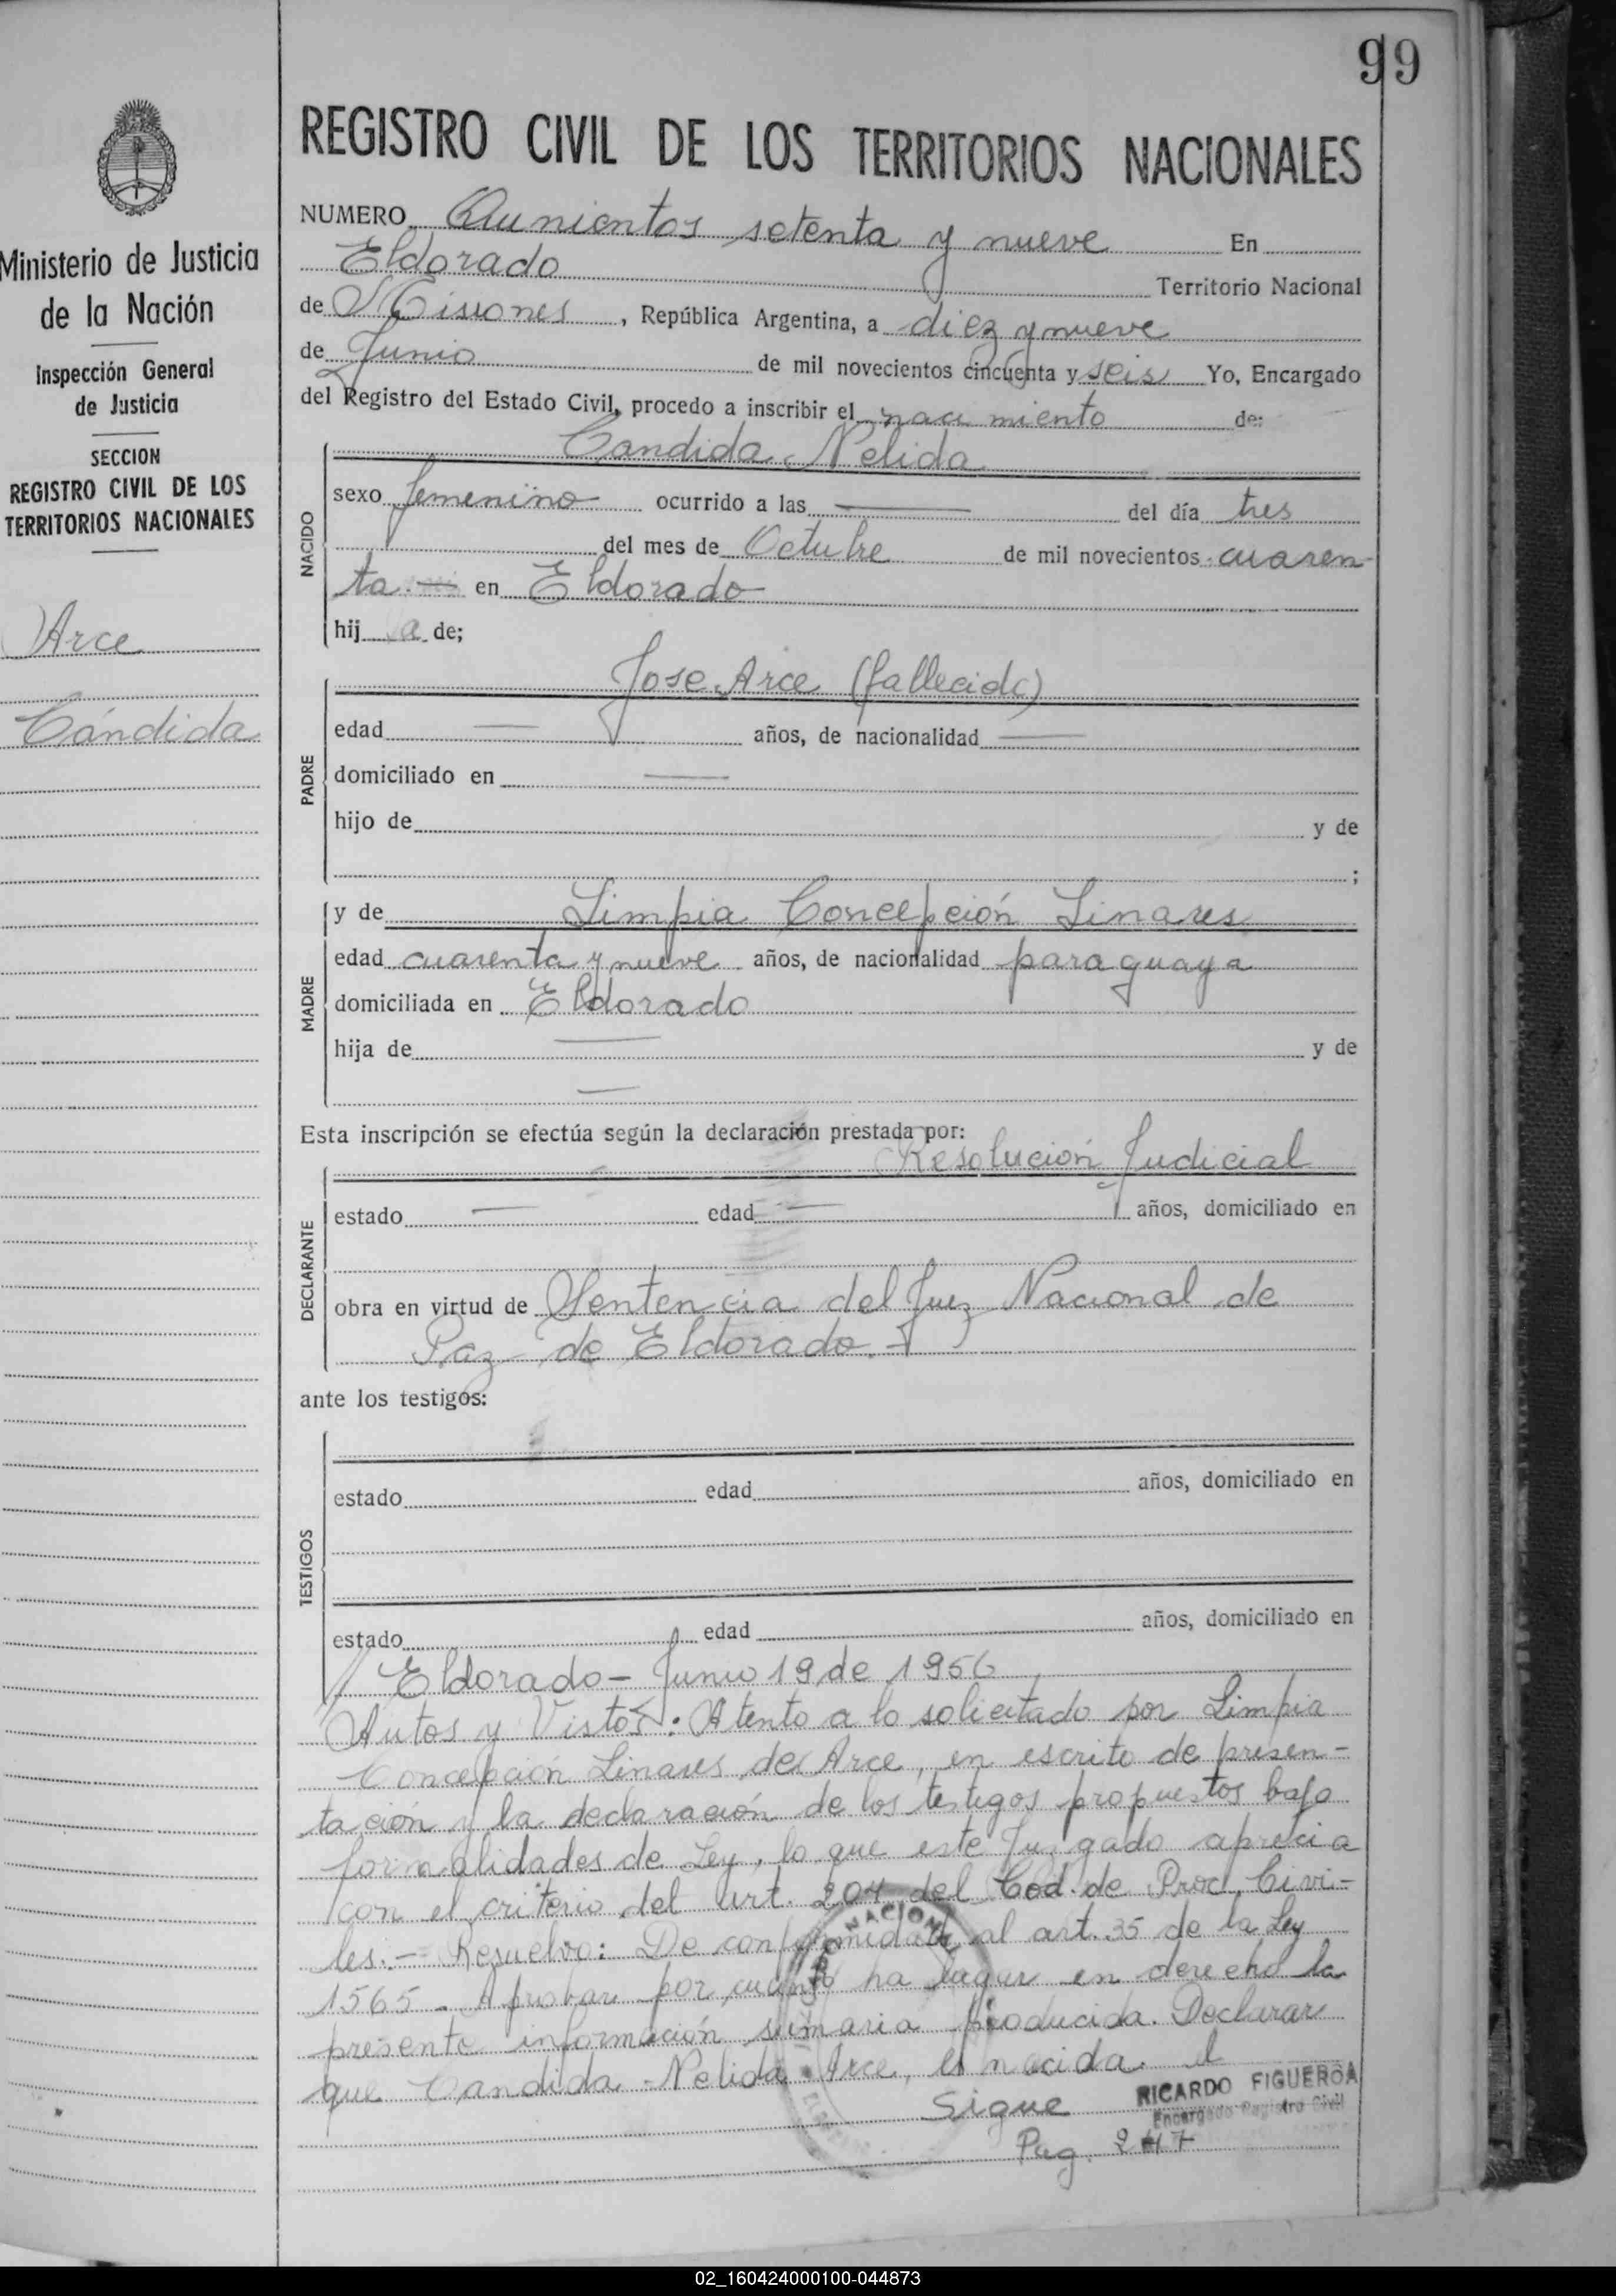 99
Ministerio de Justicia
de la Nación
Inspección General
de Justicia
SECCION
REGISTRO CIVIL DE LOS
TERRITORIOS NACIONALES
Arce
Cándida
REGISTRO CIVIL DE LOS TERRITORIOS NACIONALES
NUMERO Qunientos setenta y nueve En
Eldorado Territorio Nacional
de Misiones, República Argentina, a diez y nueve
de Junio de mil novecientos cincuenta y seis Yo, Encargado
del Registro del Estado Civil, procedo a inscribir el nacimiento de:
Candida Nelida
NACIDO
sexo femenino ocurrido a las — del día tres
del mes de Octubre de mil novecientos cuaren-
ta — en Eldorado
hija de;
Jose Arce (fallecido)
PADRE
edad — años, de nacionalidad —
domiciliado en —
hijo de y de
;
y de Limpia Concepción Linares
MADRE
edad cuarenta y nueve años, de nacionalidad paraguaya
domiciliada en Eldorado
hija de — y de
—
Esta inscripción se efectúa según la declaración prestada por:
Resolución Judicial
DECLARANTE
estado — edad — años, domiciliado en
obra en virtud de Sentencia del Juez Nacional de
Paz de Eldorado.-
ante los testigos:
TESTIGOS
estado edad años, domiciliado en
estado edad años, domiciliado en
// Eldorado - Junio 19 de 1956
Autos y Vistos: Atento a lo solicitado por Limpia
Concepción Linares de Arce, en escrito de presen-
tación y la declaración de los testigos propuestos bajo
formalidades de Ley, lo que este Juzgado aprecia
con el criterio del art. 204 del Cod. de Proc. Civi-
les.- Resuelvo: De conformidad al art. 35 de la Ley
1565 - Aprobar por cuanto ha lugar en derecho la
presente información sumaria producida. Declarar
que Candida Nelida Arce, es nacida el
Sigue
RICARDO FIGUEROA
Encargado Registro Civil
Pag. 247
02_160424000100-044873